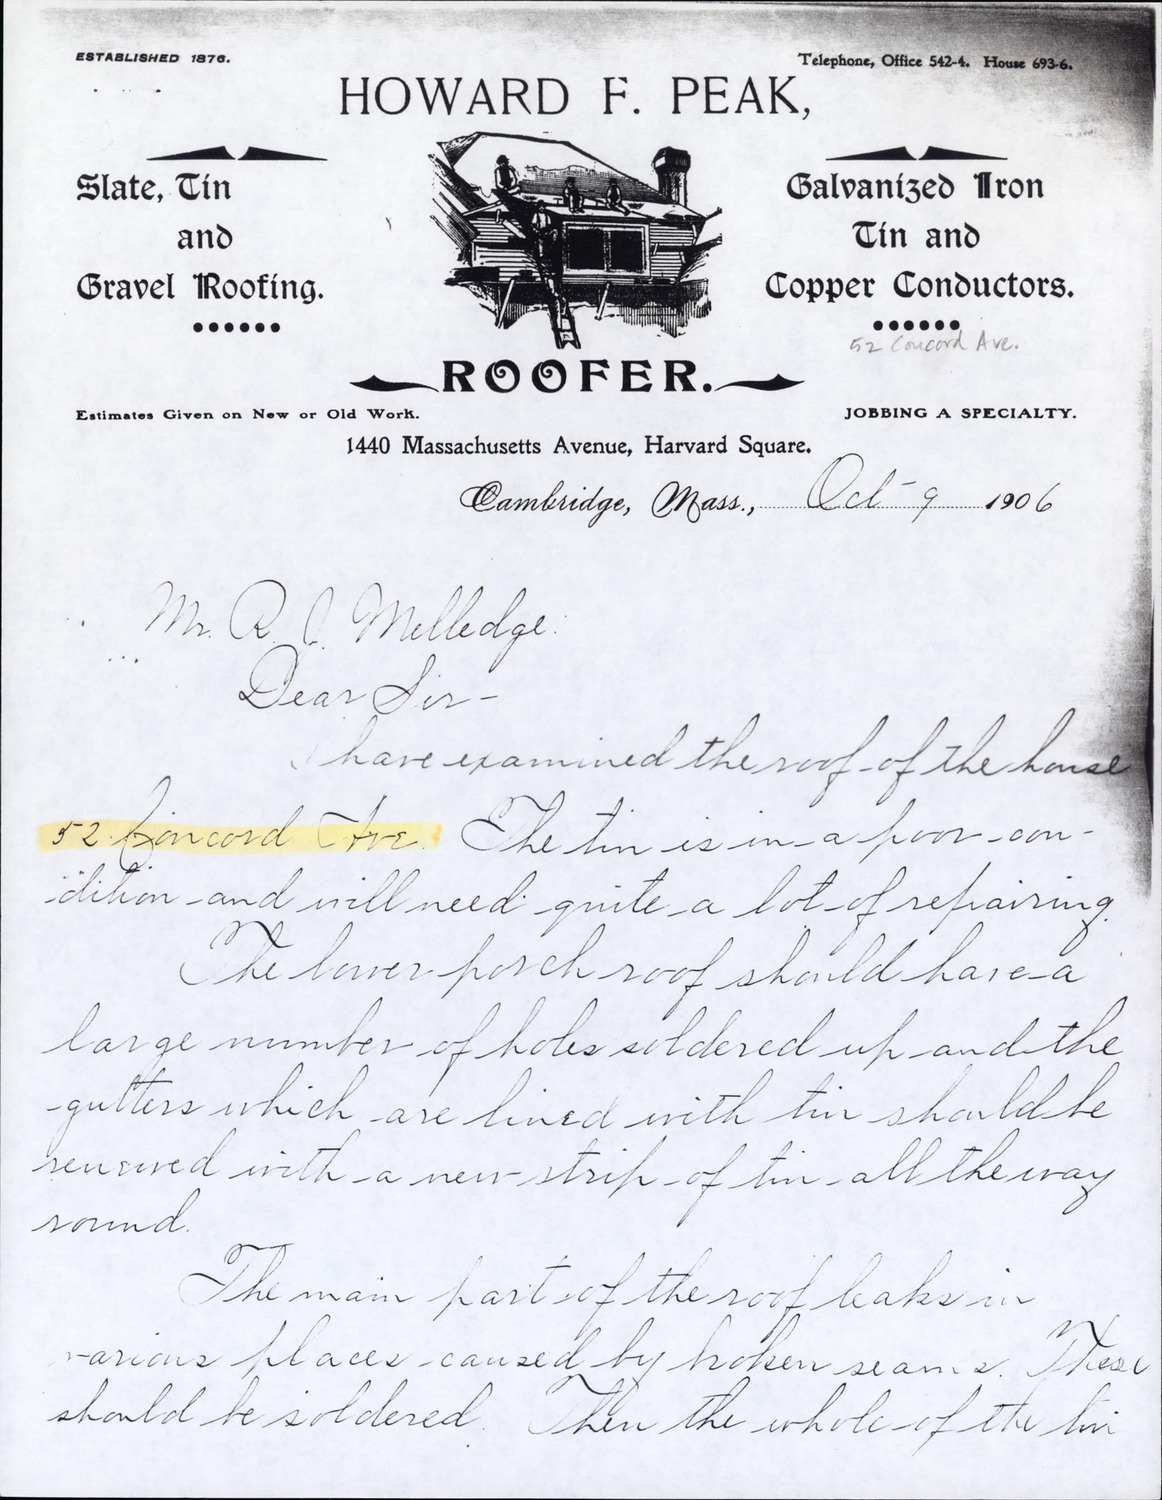 ESTABLISHED 1876.
Telephone, Office 542-4. House 693-6.
HOWARD F. PEAK,
Slate, Tin
and
Gravel Roofing.
Galvanized Iron
Tin and
Copper Conductors.
52 Concord Ave.
ROOFER.
Estimates Given on New or Old Work.
JOBBING A SPECIALTY.
1440 Massachusetts Avenue, Harvard Square.
Cambridge, Mass., Oct 9 1906
Mr. R. J. Melledge.
Dear Sir-
I have examined the roof of the house
52 Concord Ave. The tin is in a poor con-
dition and will need quite a lot of repairing.
The lower porch roof should have a
large number of holes soldered up and the
gutters which are lined with tin should be
renewed with a new strip of tin all the way
round.
The main part of the roof leaks in
various places caused by broken seams. These
should be soldered. Then the whole of the tin